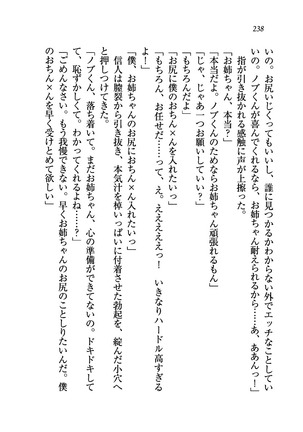 238
いの。お尻いじくってもいいし、誰に見つかるかわからない外でエッチなことしていいの。ノブくんが喜んでくれるなら、お姉ちゃん耐えられるから……あ、ああんっ！」
指が引き抜かれる感触に声が上擦った。
「お姉ちゃん、本当？」
「本当だよ。ノブくんのためならお姉ちゃん頑張れるもん」
「じゃ、じゃあ一つお願いしていい？」
「もちろんだよ」
「お尻に僕のおち×んを入れたいっ」
「もちろん、お任せだ……って、え。ええええっ！　いきなりハードル高すぎるよ！」
「僕、お姉ちゃんのお尻におち×ん入れたいっ」
信人は膣裂から引き抜き、本気汁を棹いっぱいに付着させた勃起を、綻んだ小穴へと押しつけてきた。
「ノブくん、落ち着いて。まだお姉ちゃん、心の準備ができてないの。ドキドキしてて、恥ずかしくて。わかってくれるよね……？」
「ごめんなさい。もう我慢できない。早くお姉ちゃんのお尻のことしりたいんだ。僕のおち×んを早く受けとめて欲しい」